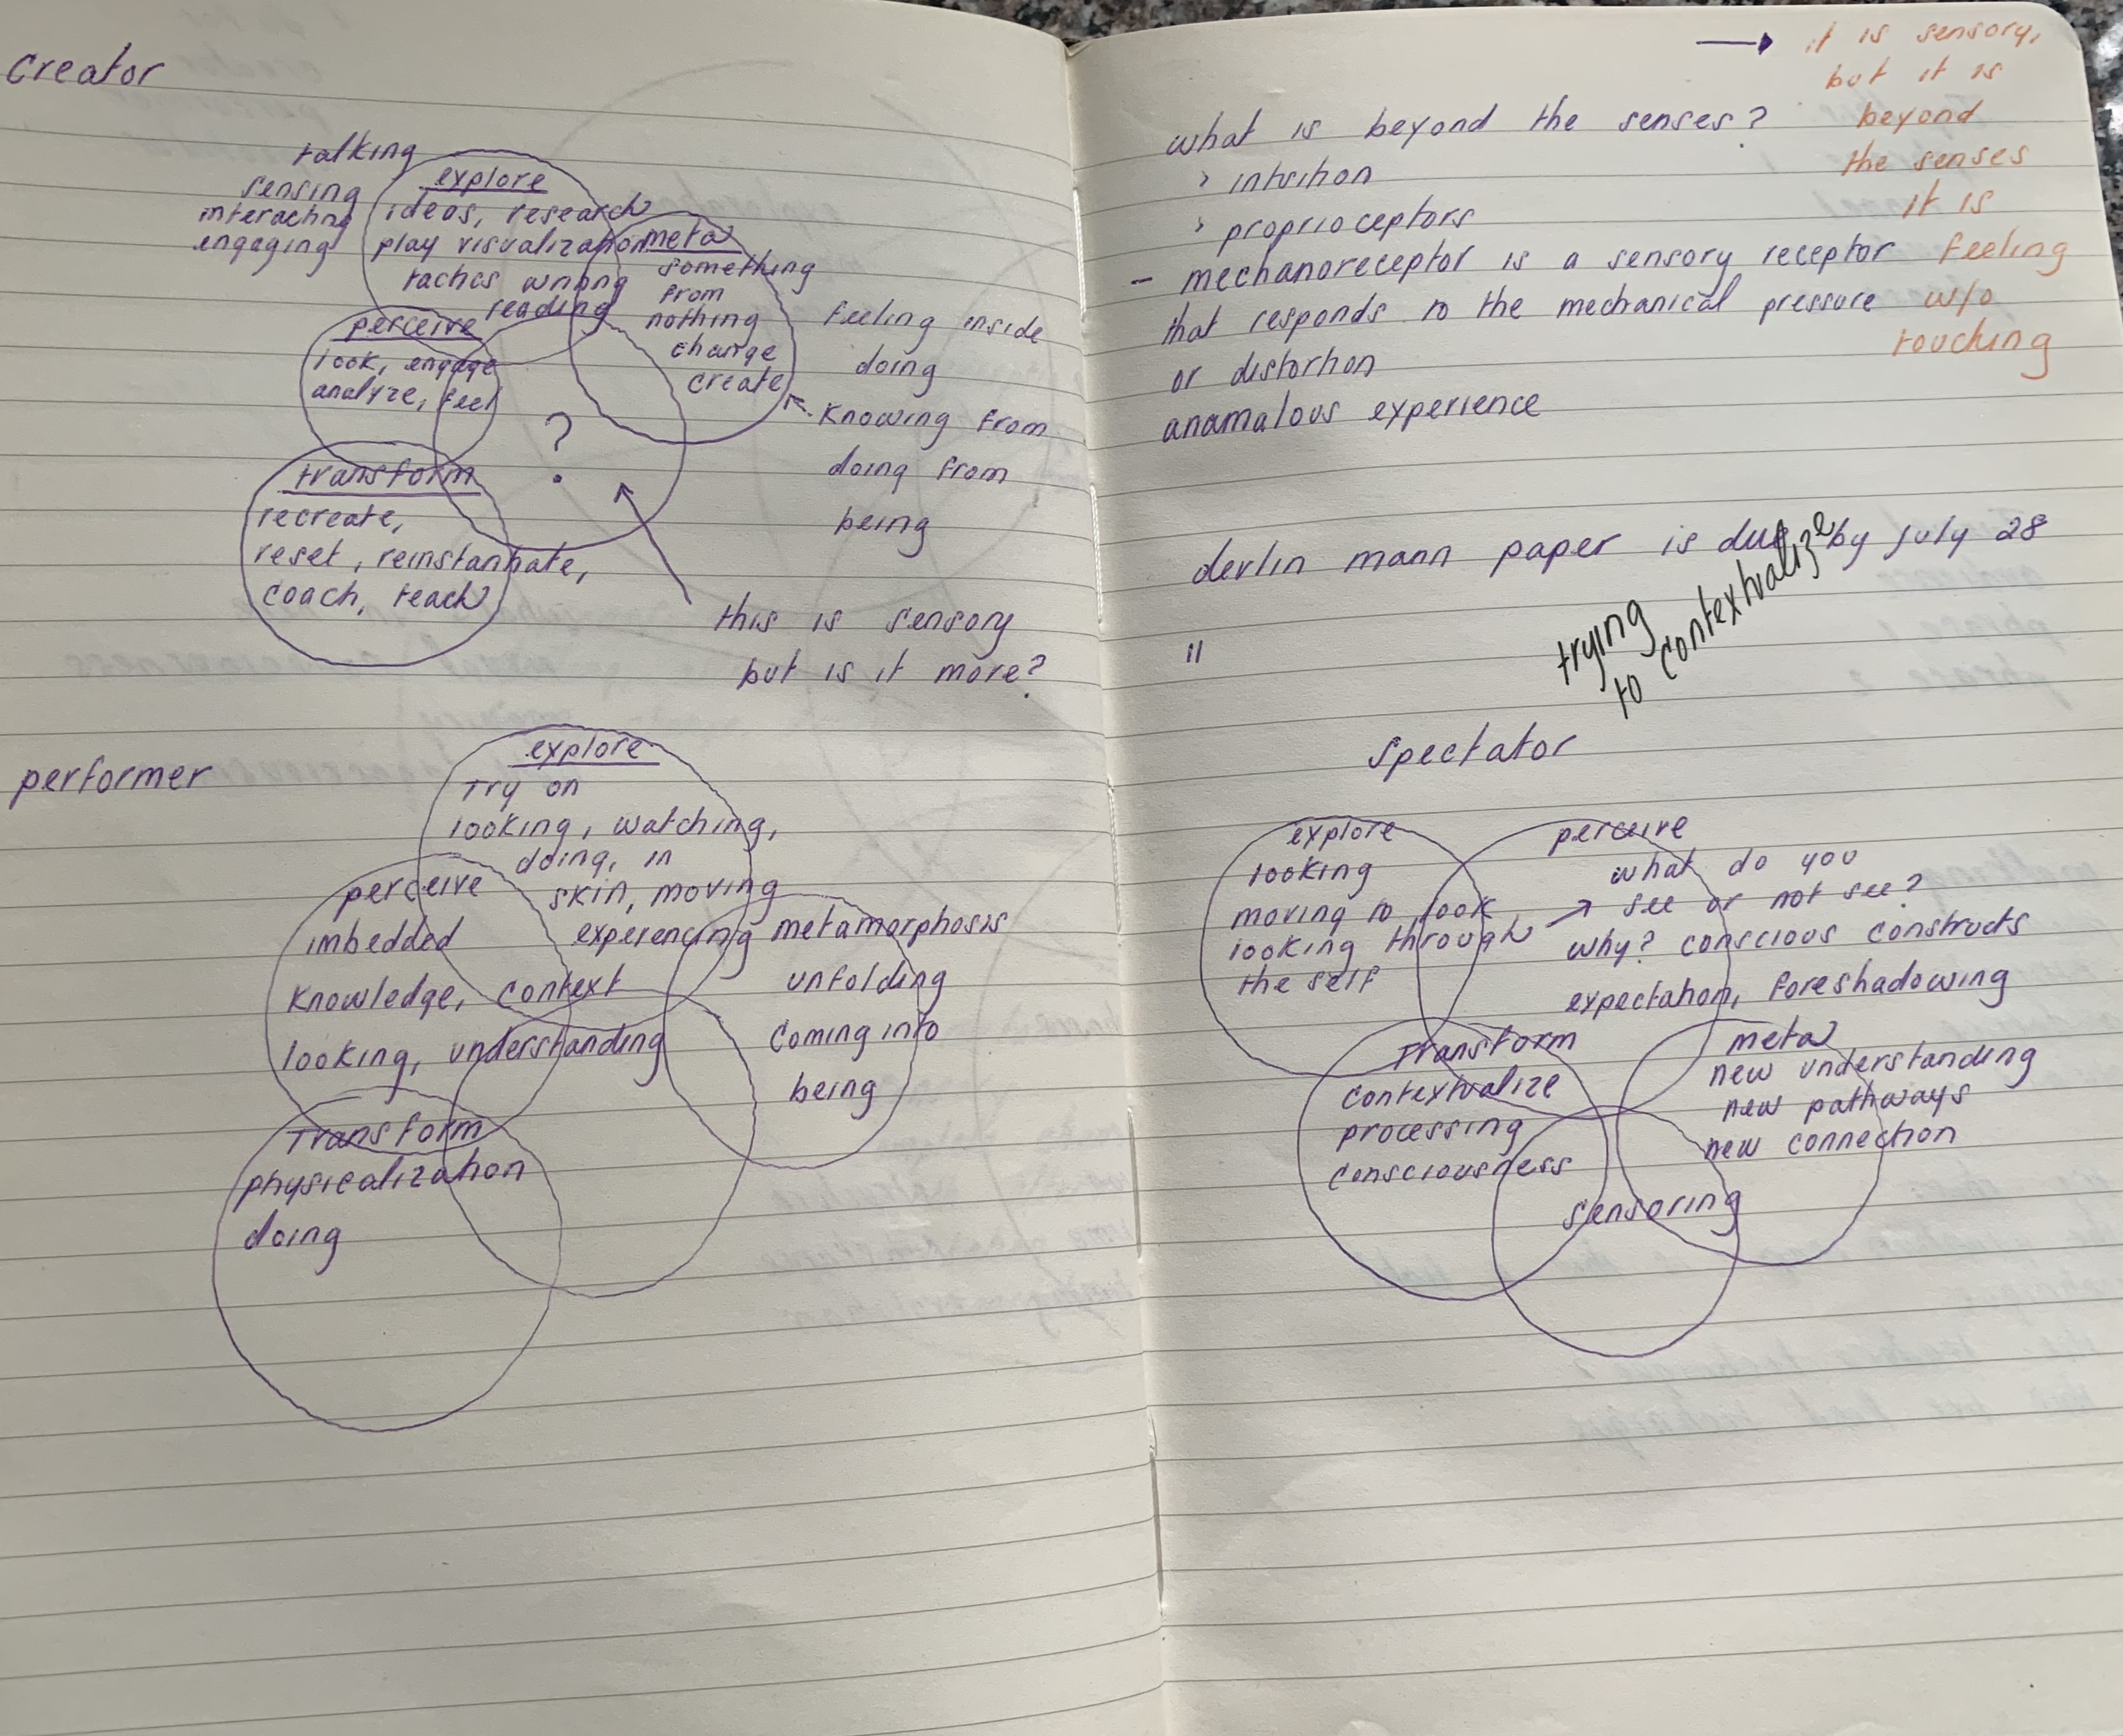 creator
talking
sensing
interacting
engaging
explore
ideas, research
play visualization
tactics writing
reading
meta
something
from
nothing
change
create
perceive
look, engage
analyze, feel
?
transform
recreate,
reset, reinstantiate,
coach, teach
feeling inside
doing
knowing from
doing from
being
this is sensory
but is it more?
performer
explore
try on
looking, watching,
doing, in
skin, moving
experiencing
perceive
imbedded
knowledge, context
looking, understanding
metamorphosis
unfolding
coming into
being
Transform
physicalization
doing
it is sensory,
but it is
beyond
the senses
it is
feeling
w/o
touching
what is beyond the senses?
› intuition
› proprioceptors
- mechanoreceptor is a sensory receptor
that responds to the mechanical pressure
or distortion
anamalous experience
derlin mann paper is due by july 28
trying
to contextualize
spectator
explore
looking
moving to look
looking through
the self
perceive
what do you
see or not see?
why? conscious constructs
expectation, foreshadowing
Transform
contextualize
processing
consciousness
meta
new understanding
new pathways
new connection
sensoring